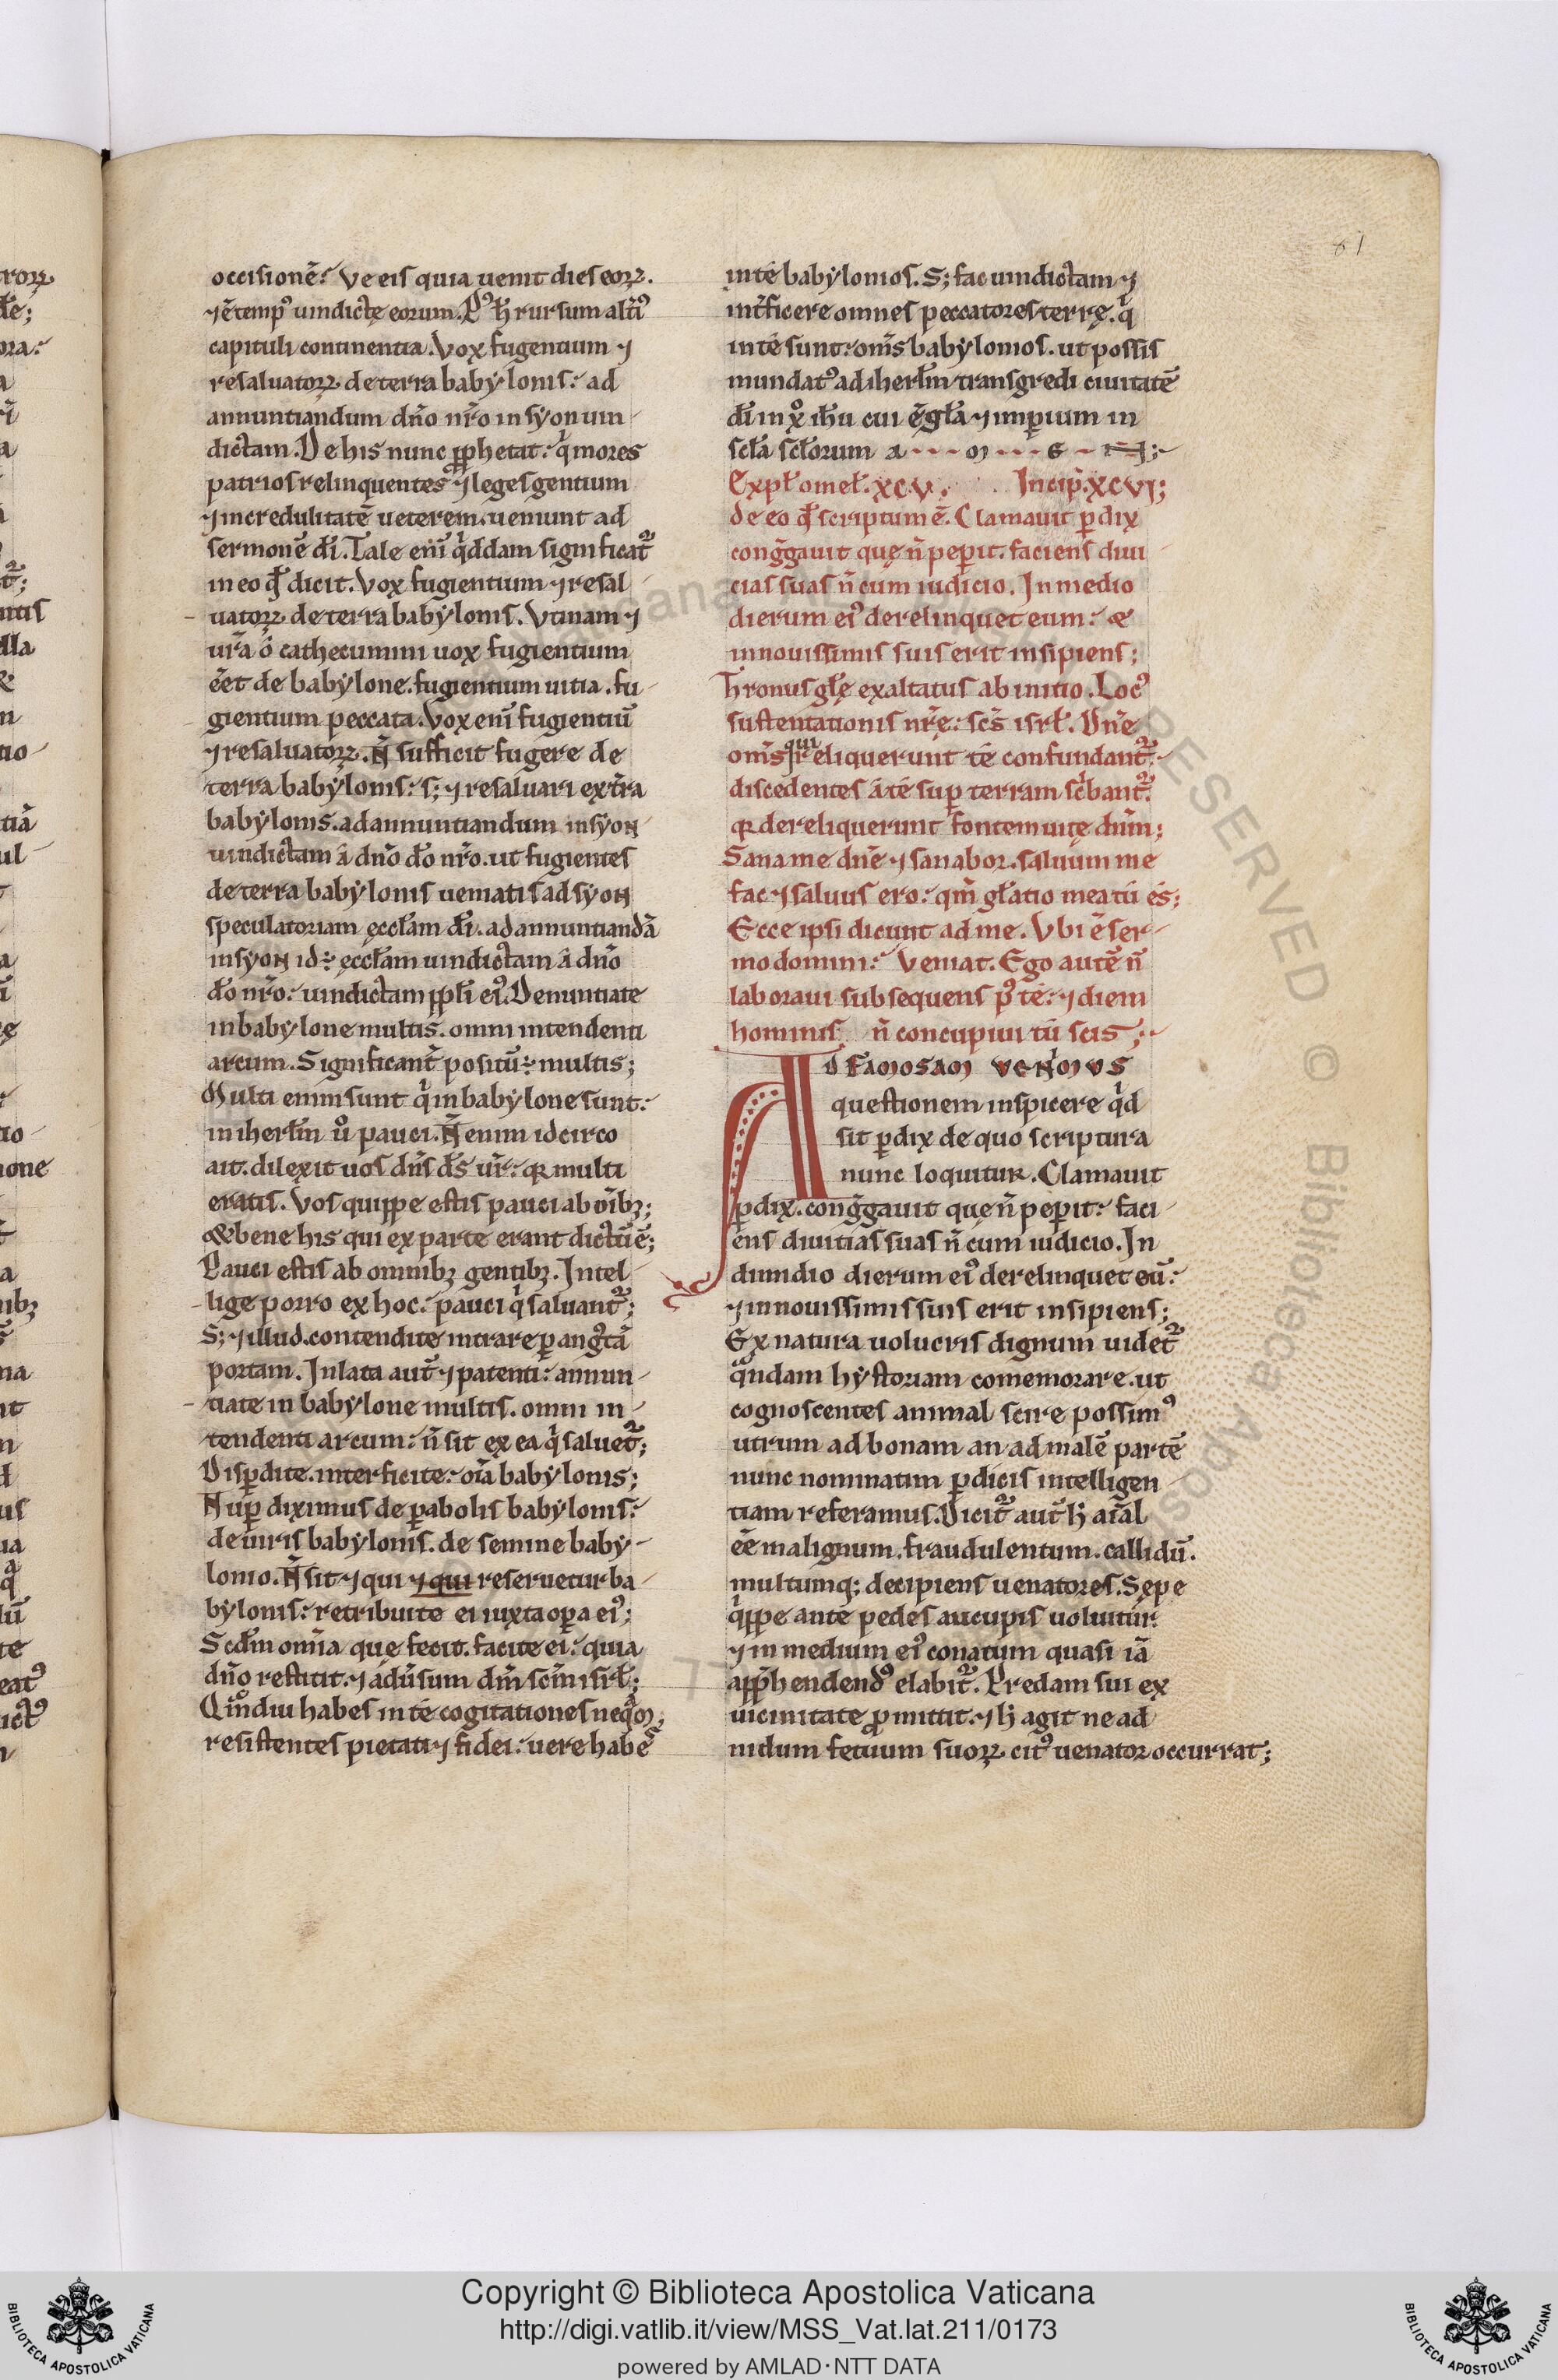 81
occisionē. Ve eis quia uenit dies eoꝝ.
⁊ ē tempꝰ uindictę eorum. Pꝰ ħ rursum altiꝰ
capituli continentia. Vox fugentium ⁊
resaluatoꝝ de terra babylonis. ad
annuntiandum dn̄o nr̄o in syon uin
dictam. De his nunc ꝓphetat. q̇ mores
patrios relinquentes ⁊ leges gentium
⁊ incredulitatē ueterem. ueniunt ad
sermonē dī. Tale enī q̇ddam significat᷑
in eo qđ dicit. Vox fugientium ⁊ resal
uatoꝝ de terra babylonis. Vtinam ⁊
ur̄a ó cathecumini uox fugientium
ēēt de babylone. fugientium uitia. fu
gientium peccata. Vox enī fugientiū
⁊ resaluatoꝝ. N̄ sufficit fugere de
terra babylonis. s; ⁊ resaluari extra
babylonis. ad annuntiandum in syon
uindictam á dn̄o do nr̄o. ut fugientes
de terra babylonis ueniatis ad syon
speculatoriam ęccłam dī. ad annuntiandā
in syon id÷ ęccłam uindictam á dn̄o
do nr̄o. uindictam ꝓpłi eiꝰ. Denuntiate
in babylone multis. omni intendenti
arcum. Significant᷑ positū÷ multis;
Multi enim sunt q̇ in babylone sunt.
in iherłm ū pauci. N̄ enim idcirco
ait. dilexit uos dn̄s ds̄ ur̄. qꝛ multi
eratis. Vos quippe estis pauci ab oīb;
& bene his qui ex parte erant dictū ē;
Pauci estis ab omnib; gentib;. Intel
lige porro ex hoc. pauci q̇ saluant᷑;
S; ⁊ illud. contendite intrare ꝑ angꝰtā
portam. In lata aut̄ ⁊ patenti. annun
tiate in babylone multis. omni in
tendenti arcum. n̄ sit ex ea q̇ saluet᷑;
Disꝑdite. interficite. oīa babylonis;
Nuꝑ diximus de ꝑabolis babylonis.
de uiris babylonis. de semine baby
lonio. N̄ sit ⁊ qui ⁊ qui reseruetur ba
bylonis. retribuite ei iuxta oꝑa eiꝰ;
Scdm omnia que fecit. facite ei. quia
dn̄o restitit. ⁊ adūsum dm̄ scm̄ isrł;
Qmdiu habes in té cogitationes neqm̄,
resistentes pietati ⁊ fidei. uere habes
in té babylonios. S; fac uindictam ⁊
int̄ficere omnes peccatores terrę. q̇
in té sunt. oms̄ babylonios. ut possis
mundatꝰ ad iherłm transgredi ciuitatē
dī in xp̊ ihū cui ē gła ⁊ imꝑium in
scła scłorum a --- m --- e - N;
Expł omeł. xcv. Incip̄. xcvi;
de eo qđ scriptum ē. Clamauit ꝑdix
congg̃auit quę n̄ peꝑit. faciens diui
cias suas n̄ cum iudicio. In medio
dierum eiꝰ derelinquet eum. &
in nouissimis suis erit insipiens;
Thronus głę exaltatus ab initio. Locꝰ
sustentationis nr̄ę. scs̄ isrł. Dn̄e
oms̄ qui reliquerunt té confundant᷑.
discedentes á té suꝑ terram sc̄bant᷑.
qꝛ dereliquerunt fontem uitę dnm̄;
Sana me dn̄e ⁊ sanabor. saluum me
fac ⁊ saluus ero. qm̄ głatio mea tú és;
Ecce ipsi dicunt ad me. Vbi ē ser
mo domini. Veniat. Ego autē n̄
laboraui subsequens pꝰ té. ⁊ diem
hominis n̄ concupiui tú scis;
AD FAMOSAM VENIMVS
questionem inspicere q̇d
sit ꝑdix de quo scriptura
nunc loquitur. Clamauit
ꝑdix. congg̃auit quę n̄ peꝑit. faci
ens diuitias suas n̄ cum iudicio. In
dimidio dierum eiꝰ derelinquet eū.
⁊ in nouissimis suis erit insipiens;
Ex natura uolucris dignum uidet᷑
quandam hystoriam comemorare. ut
cognoscentes animal scire possimꝰ
utrum ad bonam an ad malē partē
nunc nominatim ꝑdicis intelligen
tiam referamus. Dicit᷑ aut̄ ħ aīal
ēē malignum. fraudulentum. callidū.
multumq; decipiens uenatores. Sepe
q̇ppe ante pedes aucupis uoluitur.
⁊ in medium eiꝰ conatum quasi iā
apꝓhendendꝰ elabit᷑. Predam sui ex
uicinitate ꝓmittit. ⁊ ħ agit ne ad
nidum fetuum suoꝝ citꝰ uenator occurrat;
Copyright © Biblioteca Apostolica Vaticana
http://digi.vatlib.it/view/MSS_Vat.lat.211/0173
powered by AMLAD·NTT DATA
BIBLIOTECA APOSTOLICA VATICANA
BIBLIOTECA APOSTOLICA VATICANA